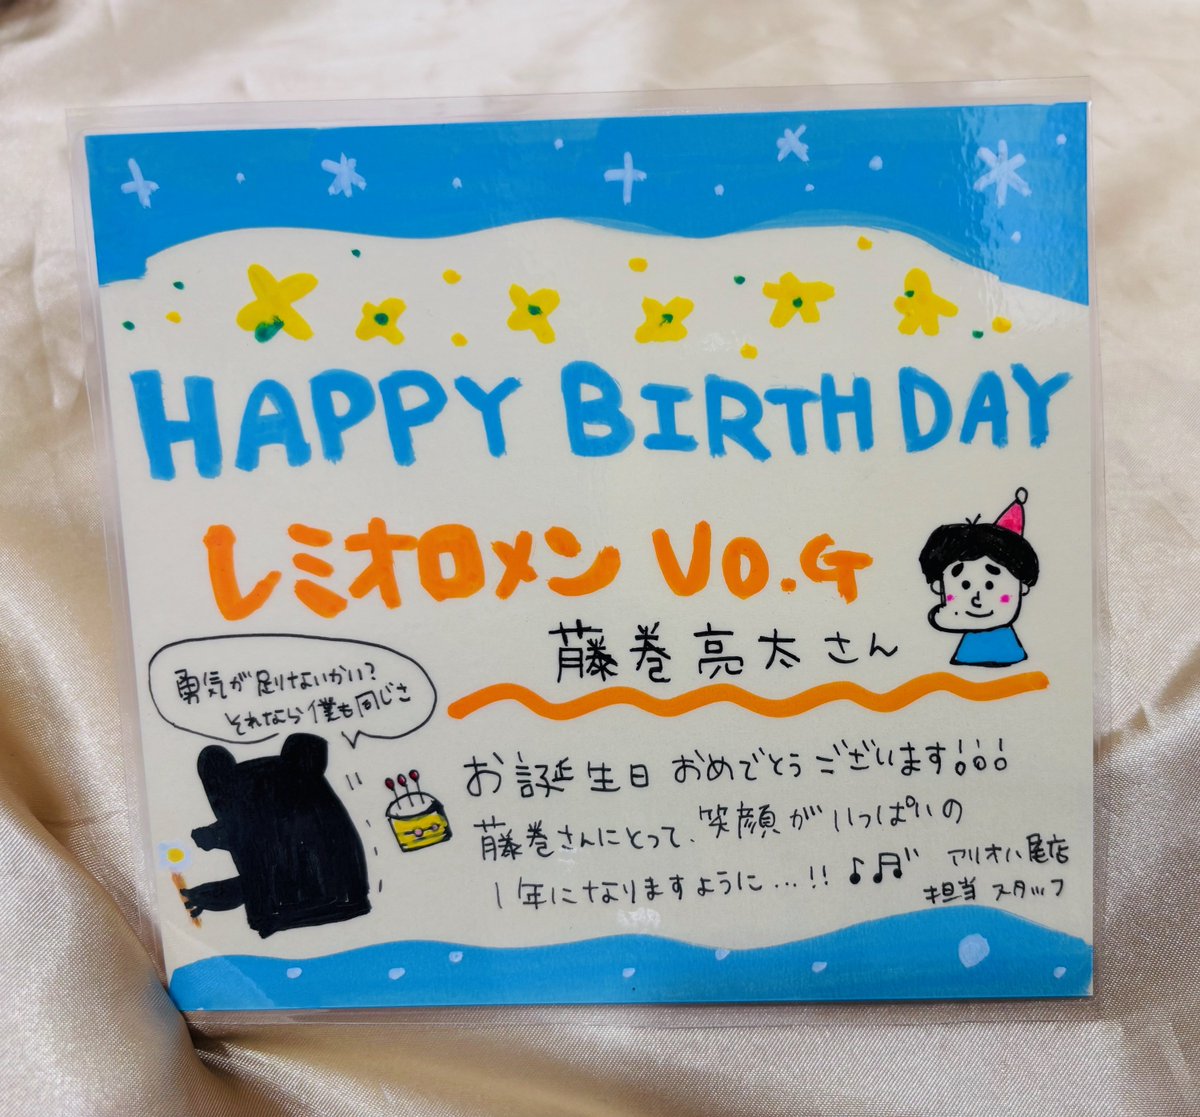 HAPPY BIRTHDAY
レミオロメン Vo.G
藤巻亮太さん
勇気が足りないかい?
それなら僕も同じさ
お誕生日おめでとうございます!!!
藤巻さんにとって、笑顔がいっぱいの
1年になりますように…!!♪♬
アリオ八尾店
担当 スタッフ